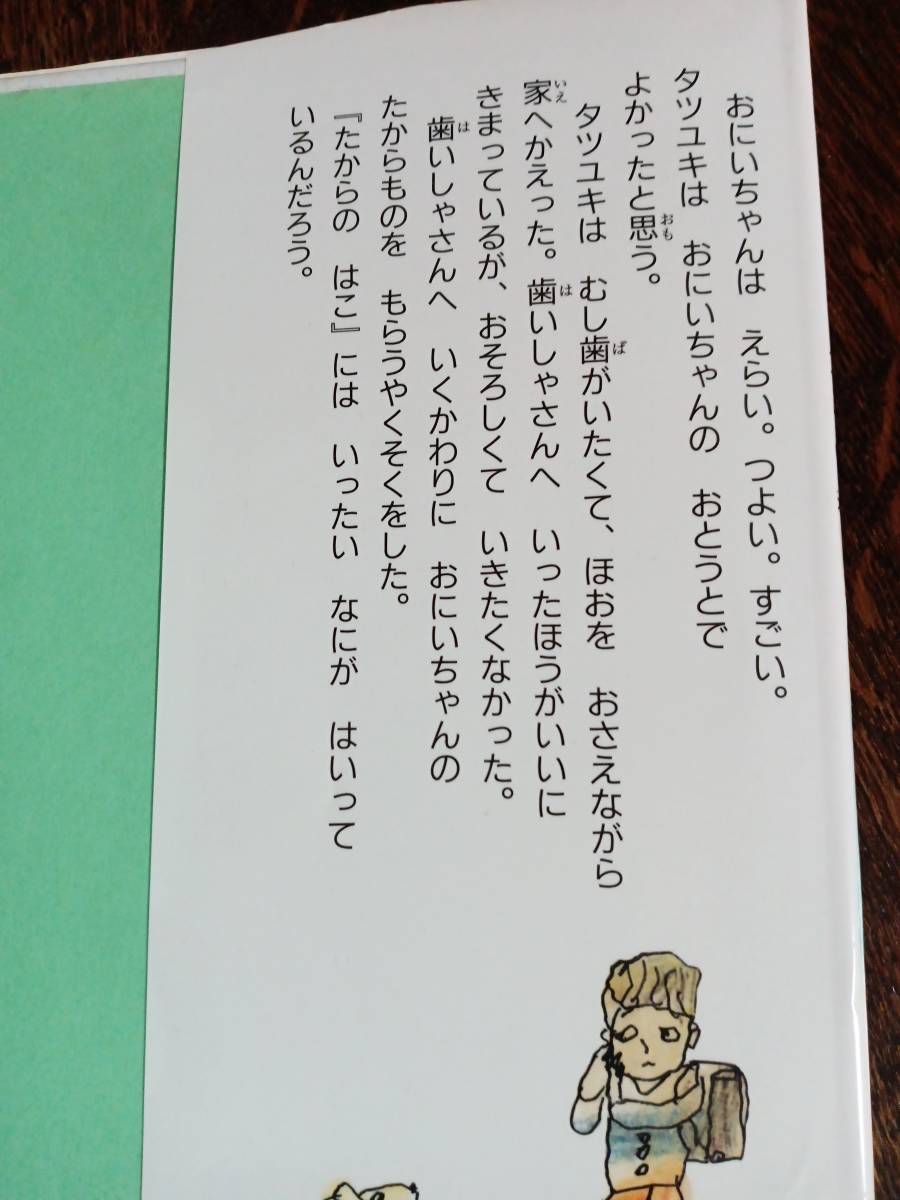 おにいちゃんは　えらい。つよい。すごい。
タツユキは　おにいちゃんの　おとうとで
よかったと思う。
タツユキは　むし歯がいたくて、ほおを　おさえながら
家へかえった。歯いしゃさんへ　いったほうがいいに
きまっているが、おそろしくて　いきたくなかった。
歯いしゃさんへ　いくかわりに　おにいちゃんの
たからものを　もらうやくそくをした。
『たからの　はこ』には　いったい　なにが　はいって
いるんだろう。